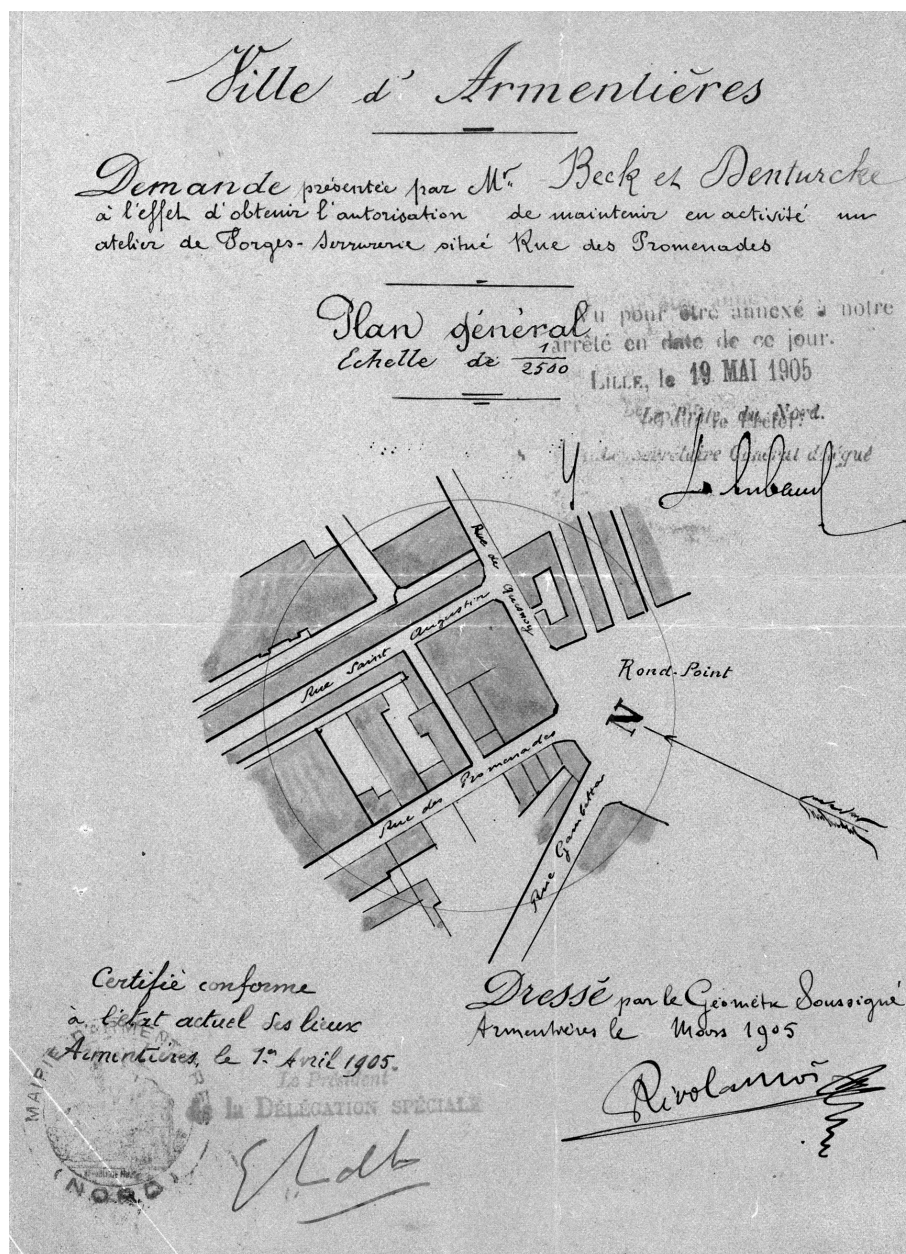 Ville d'Armentières
Demande présentée par Mr. Beck et Denturcke
à l'effet d'obtenir l'autorisation de maintenir en activité un
atelier de Forges-Serrurerie situé Rue des Promenades
Plan général
Echelle de 1/2500
Vu pour être annexé à notre
arrêté en date de ce jour.
LILLE, le 19 MAI 1905
Le Préfet du Nord.
Le Secrétaire Général délégué
Rue de Quesnoy
Rue Saint Augustin
Rond-Point
N
Rue des Promenades
Rue Gambetta
Certifié conforme
à l'état actuel des lieux
Armentières, le 1er Avril 1905.
Le Président
de la DÉLÉGATION SPÉCIALE
MAIRIE D'ARMENTIÈRES
(NORD)
Dressé par le Géomètre Soussigné
Armentières le Mars 1905